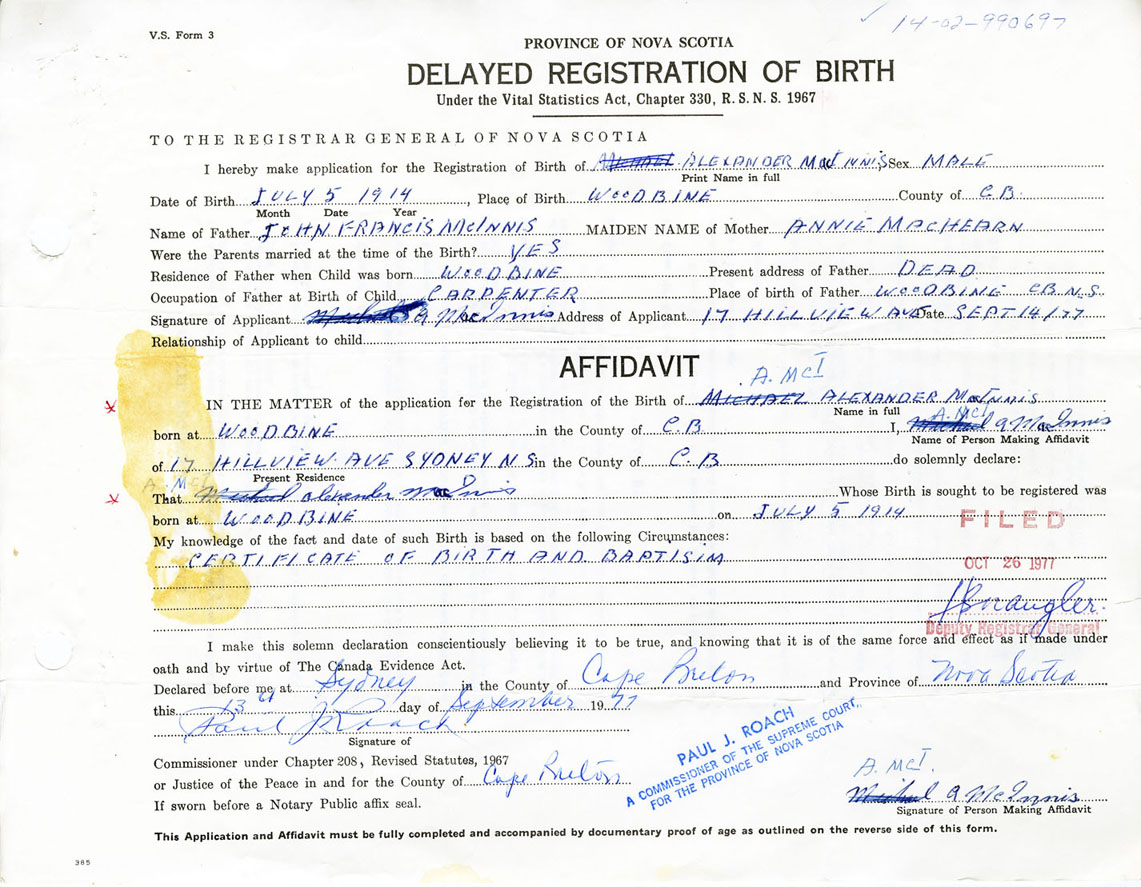 V.S. Form 3
14-02-990697
PROVINCE OF NOVA SCOTIA
DELAYED REGISTRATION OF BIRTH
Under the Vital Statistics Act, Chapter 330, R.S.N.S. 1967
TO THE REGISTRAR GENERAL OF NOVA SCOTIA
I hereby make application for the Registration of Birth of MICHAEL ALEXANDER MacINNIS Sex MALE
Print Name in full
Date of Birth JULY 5 1914, Place of Birth WOODBINE County of C.B.
Month Date Year
Name of Father JOHN FRANCIS McINNIS MAIDEN NAME of Mother ANNIE MACHEARN
Were the Parents married at the time of the Birth? YES
Residence of Father when Child was born WOODBINE Present address of Father DEAD
Occupation of Father at Birth of Child CARPENTER Place of birth of Father WOODBINE CB.N.S.
Signature of Applicant A MacInnis Address of Applicant 17 HILLVIEW AVE Date SEPT 14/77
Relationship of Applicant to child
AFFIDAVIT
A. McI
IN THE MATTER of the application for the Registration of the Birth of MICHAEL ALEXANDER MacINNIS
Name in full
A. McI
born at WOODBINE in the County of C.B I, Michael A MacInnis
Name of Person Making Affidavit
of 17 HILLVIEW AVE SYDNEY N S in the County of C.B do solemnly declare:
Present Residence
A. McI
That Michael Alexander MacInnis Whose Birth is sought to be registered was
born at WOODBINE on JULY 5 1914
FILED
My knowledge of the fact and date of such Birth is based on the following Circumstances:
CERTIFICATE OF BIRTH AND BAPTISIM
OCT 26 1977
Deputy Registrar General
I make this solemn declaration conscientiously believing it to be true, and knowing that it is of the same force and effect as if made under
oath and by virtue of The Canada Evidence Act.
Declared before me at Sydney in the County of Cape Breton and Province of Nova Scotia
this 13th day of September 1977
Paul J Roach
Signature of
PAUL J. ROACH
A COMMISSIONER OF THE SUPREME COURT,
FOR THE PROVINCE OF NOVA SCOTIA
Commissioner under Chapter 208, Revised Statutes, 1967
or Justice of the Peace in and for the County of Cape Breton
If sworn before a Notary Public affix seal.
A. McI.
Michael A McInnis
Signature of Person Making Affidavit
This Application and Affidavit must be fully completed and accompanied by documentary proof of age as outlined on the reverse side of this form.
385